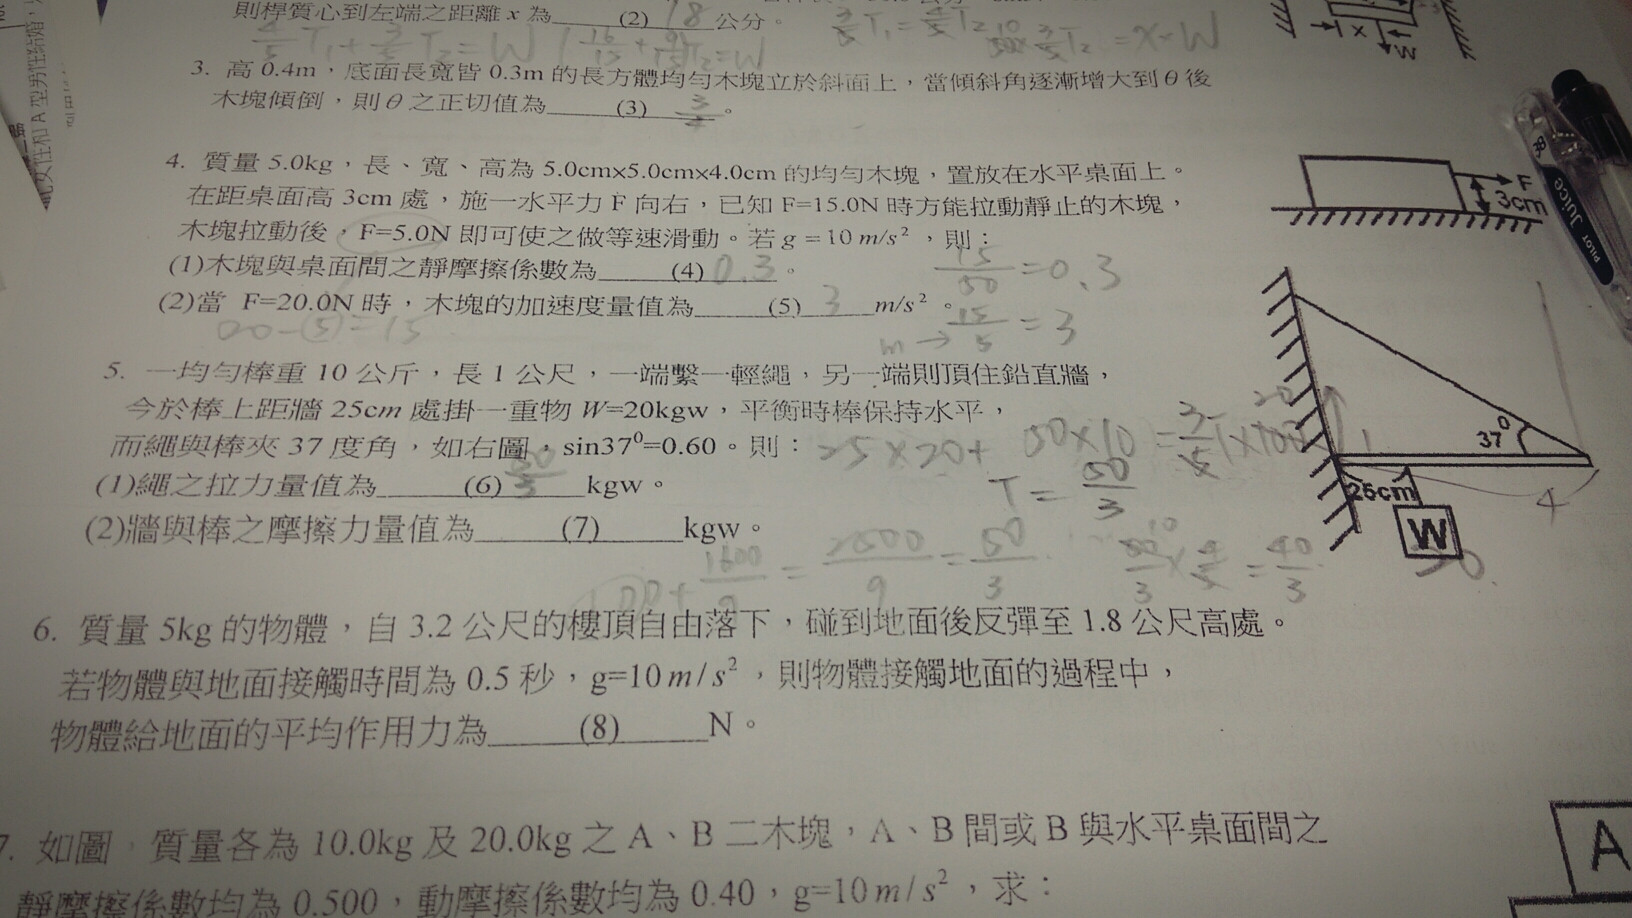 則桿質心到左端之距離 x 為 (2) 18 公分。
3. 高 0.4m,底面長寬皆 0.3m 的長方體均勻木塊立於斜面上,當傾斜角逐漸增大到θ後
木塊傾倒,則θ之正切值為 (3) 3/4 。
4. 質量 5.0kg,長、寬、高為 5.0cm×5.0cm×4.0cm 的均勻木塊,置放在水平桌面上。
在距桌面高 3cm 處,施一水平力 F 向右,已知 F=15.0N 時方能拉動靜止的木塊,
木塊拉動後,F=5.0N 即可使之做等速滑動。若 g = 10 m/s²,則:
F
3cm
(1)木塊與桌面間之靜摩擦係數為 (4) 0.3 。
15/50 = 0.3
(2)當 F=20.0N 時,木塊的加速度量值為 (5) 3 m/s²。
20-⑤=15
m → 15/5 = 3
5. 一均勻棒重 10 公斤,長 1 公尺,一端繫一輕繩,另一端則頂住鉛直牆,
今於棒上距牆 25cm 處掛一重物 W=20kgw,平衡時棒保持水平,
而繩與棒夾 37 度角,如右圖,sin37⁰=0.60。則:
25×20+ 50×10 = 3/5 T×100
(1)繩之拉力量值為 (6) 50/3 kgw。
T = 50/3
(2)牆與棒之摩擦力量值為 (7) kgw。
37⁰
25cm
W
4
+ 1600/9 = 2500/9 = 50/3
50/3 × 4/5 = 40/3
6. 質量 5kg 的物體,自 3.2 公尺的樓頂自由落下,碰到地面後反彈至 1.8 公尺高處。
若物體與地面接觸時間為 0.5 秒,g=10 m/s²,則物體接觸地面的過程中,
物體給地面的平均作用力為 (8) N。
7. 如圖,質量各為 10.0kg 及 20.0kg 之 A、B 二木塊,A、B 間或 B 與水平桌面間之
靜摩擦係數均為 0.500,動摩擦係數均為 0.40,g=10 m/s²,求:
A
x
W
PILOT
Juice